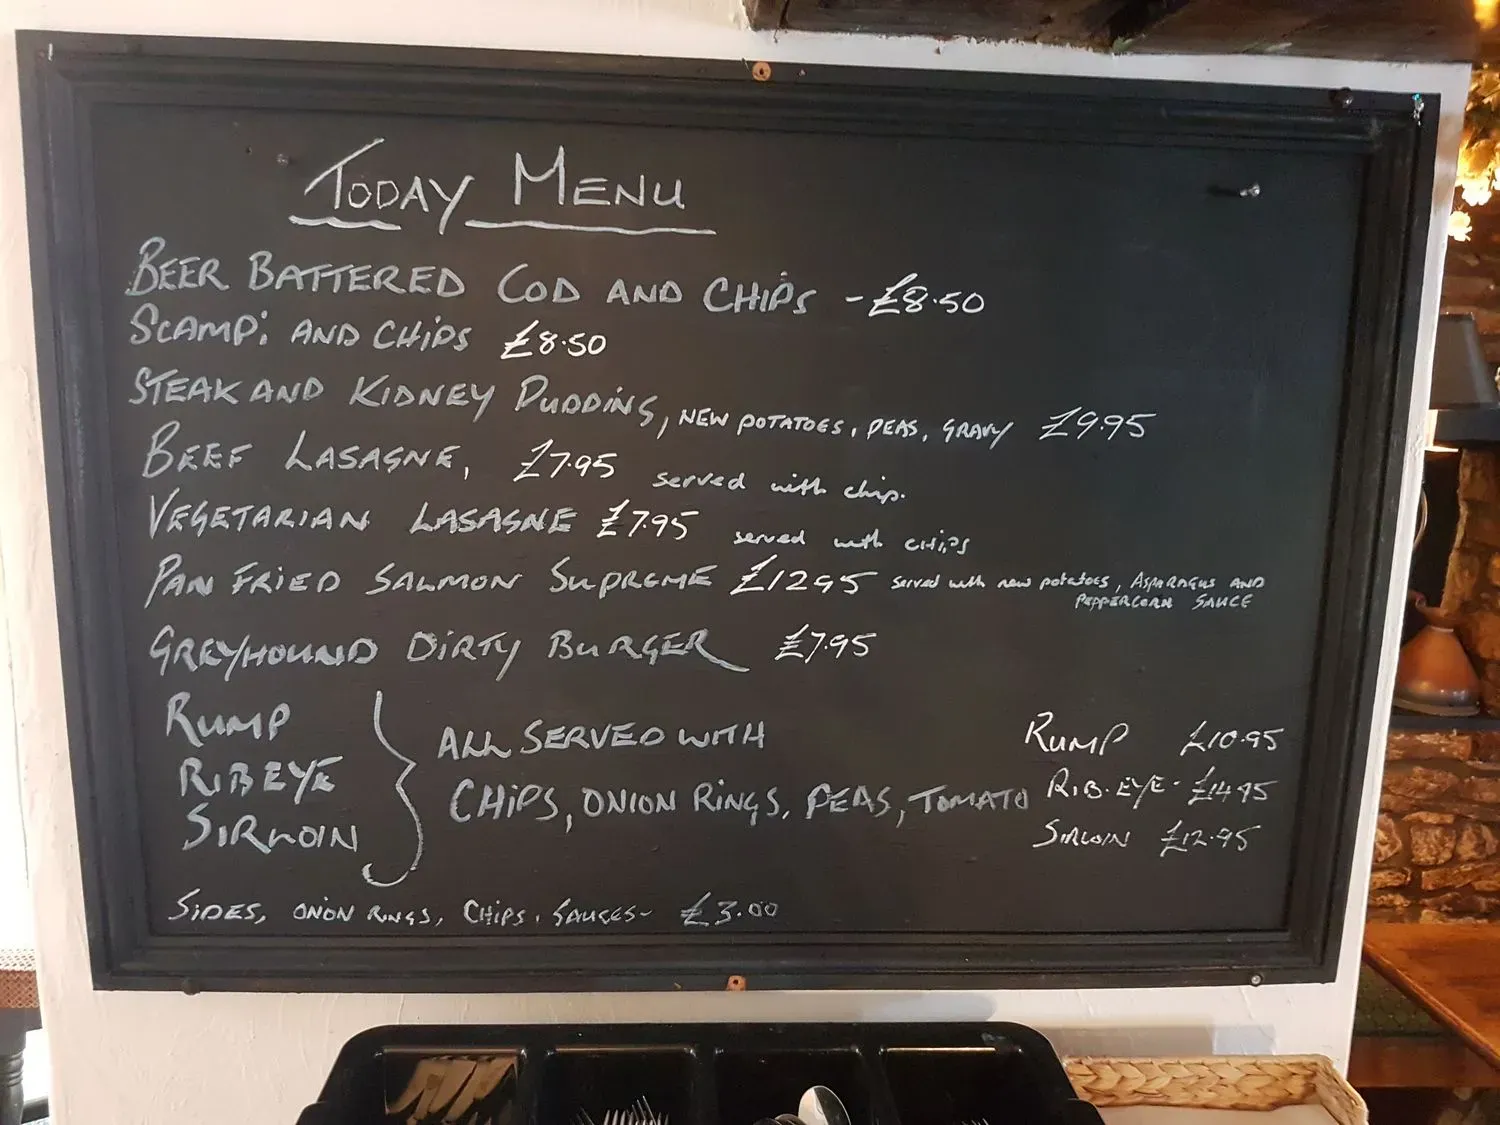 TODAY MENU
BEER BATTERED COD AND CHIPS - £8.50
SCAMPi AND CHiPS £8.50
STEAK AND KIDNEY PUDDING, NEW POTATOES, PEAS, GRAVY £9.95
BEEF LASAGNE, £7.95 served with chip.
VEGETARIAN LASAGNE £7.95 served with CHiPS
PAN FRIED SALMON SUPREME £1295 served with new potatoes, ASPARAGUS AND
PEPPERCORN SAUCE
GREYHOUND DiRTY BURGER £7.95
RUMP
RIBEYE
SIRLOIN
ALL SERVED WITH
CHiPS, ONION RINGS, PEAS, TOMATO
RUMP £10.95
RIB.EYE - £14.95
SIRLOIN £12.95
SiDES, ONION RINGS, CHiPS, SAUCES - £3.00